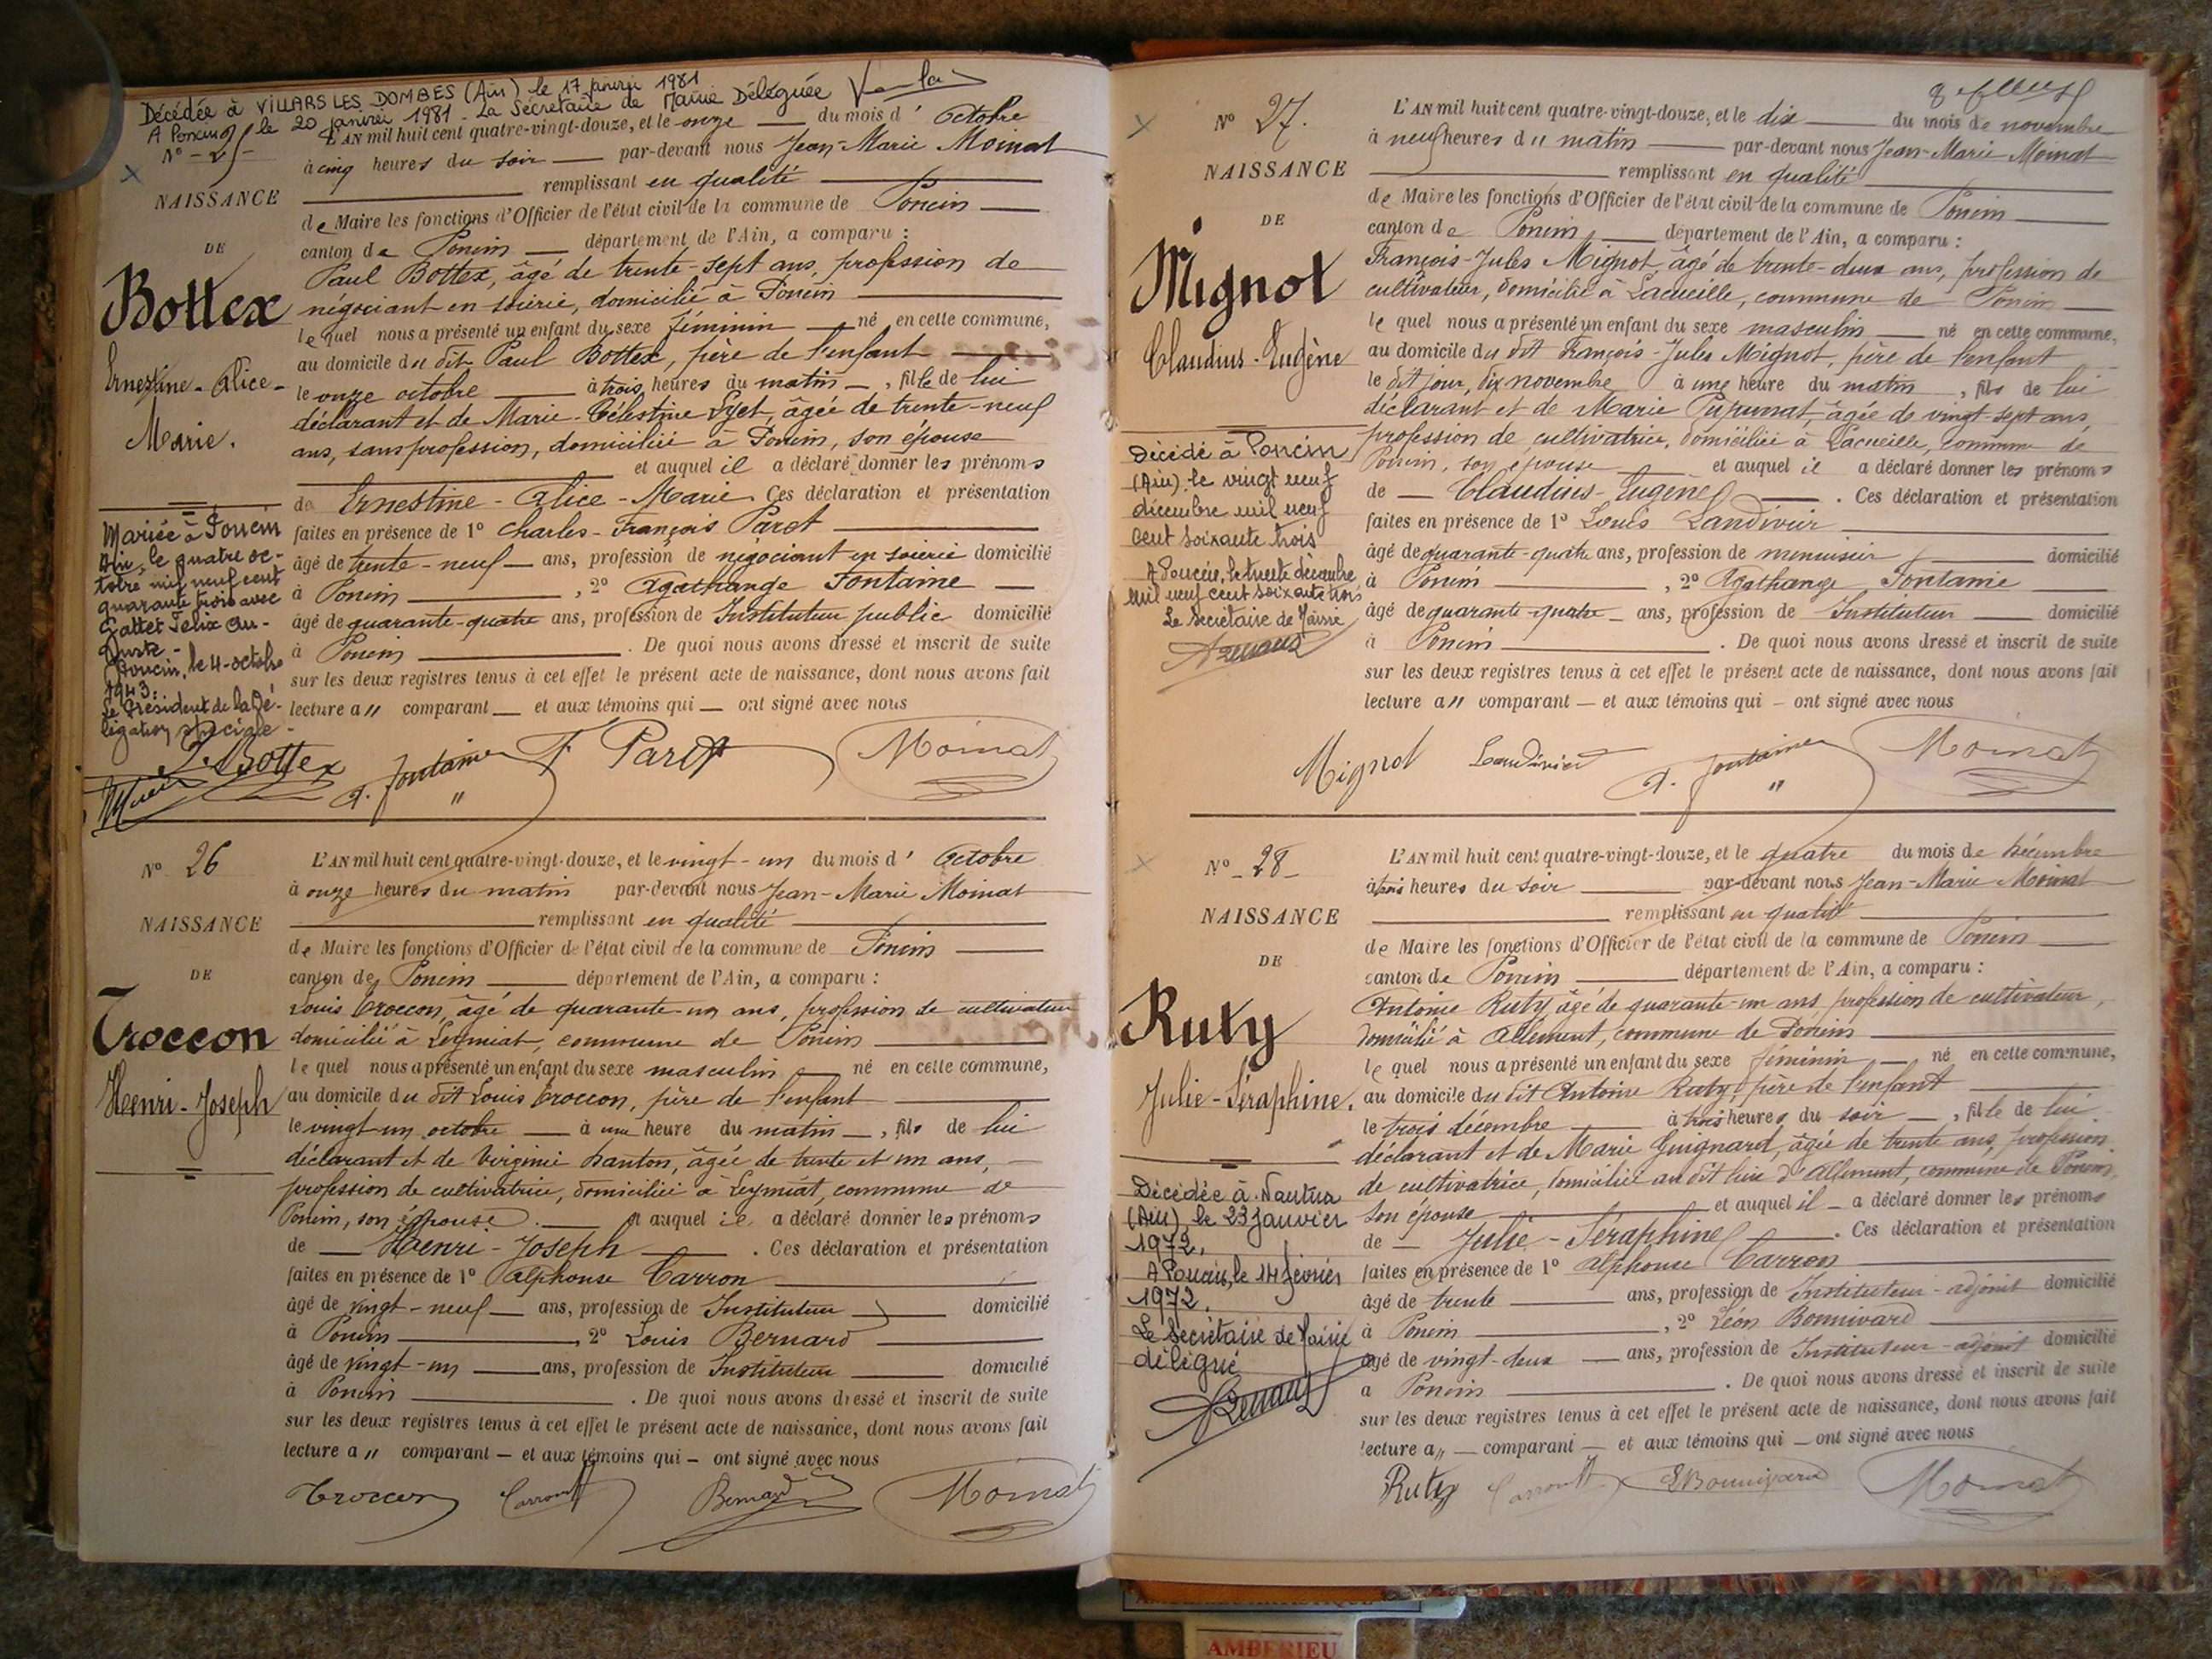 Décédée à VILLARS LES DOMBES (Ain) le 17 janvier 1981
A Poncin le 20 janvier 1981 - La Secrétaire de Mairie Déléguée
N° - 25 -
NAISSANCE
DE
Bottex
Ernestine - Alice -
Marie.
Mariée à Poncin
Ain, le quatre oc-
tobre mil neuf cent
quarante trois avec
Gattet Félix Au-
guste -
Poncin, le 4 octobre
1943:
Le Président de la Dé-
légation spéciale -
L'AN mil huit cent quatre-vingt-douze, et le onze du mois d' Octobre
à cinq heures du soir par-devant nous Jean-Marie Moinat
remplissant en qualité
de Maire les fonctions d'Officier de l'état civil de la commune de Poncin
canton de Poncin département de l'Ain, a comparu :
Paul Bottex, âgé de trente-sept ans, profession de
négociant en soierie, domicilié à Poncin
lequel nous a présenté un enfant du sexe féminin né en cette commune,
au domicile du dit Paul Bottex, père de l'enfant
le onze octobre à trois heures du matin, fille de lui
déclarant et de Marie-Célestine âgée de trente-neuf
ans, sans profession, domiciliée à Poncin, son épouse
et auquel il a déclaré donner les prénoms
de Ernestine - Alice - Marie. Ces déclaration et présentation
faites en présence de 1° Charles-François Parot
âgé de trente-neuf ans, profession de négociant en soierie domicilié
à Poncin, 2° Agathange Fontaine
âgé de quarante-quatre ans, profession de Instituteur public domicilié
à Poncin. De quoi nous avons dressé et inscrit de suite
sur les deux registres tenus à cet effet le présent acte de naissance, dont nous avons fait
lecture a" comparant et aux témoins qui ont signé avec nous
P. Bottex A. Fontaine F Parot Moinat
N° 26
NAISSANCE
DE
Troccon
Henri-Joseph
L'AN mil huit cent quatre-vingt-douze, et le vingt-un du mois d' Octobre
à onze heures du matin par-devant nous Jean-Marie Moinat
remplissant en qualité
de Maire les fonctions d'Officier de l'état civil de la commune de Poncin
canton de Poncin département de l'Ain, a comparu :
Louis Troccon, âgé de quarante-un ans, profession de cultivateur
domicilié à Leymiat, commune de Poncin
lequel nous a présenté un enfant du sexe masculin né en cette commune,
au domicile du dit Louis Troccon, père de l'enfant
le vingt-un octobre à une heure du matin, fils de lui
déclarant et de Virginie Danton, âgée de trente et un ans,
profession de cultivatrice, domiciliée à Leymiat, commune de
Poncin, son épouse. et auquel il a déclaré donner les prénoms
de Henri-Joseph. Ces déclaration et présentation
faites en présence de 1° Alphonse Carron
âgé de vingt-neuf ans, profession de Instituteur domicilié
à Poncin, 2° Louis Bernard
âgé de vingt-un ans, profession de Instituteur domicilié
à Poncin. De quoi nous avons dressé et inscrit de suite
sur les deux registres tenus à cet effet le présent acte de naissance, dont nous avons fait
lecture a" comparant et aux témoins qui ont signé avec nous
Troccon Carron Bernard Moinat
N° 27.
NAISSANCE
DE
Mignot
Claudius-Eugène
Décédé à Poncin
(Ain), le vingt neuf
décembre mil neuf
cent soixante trois
A Poncin, le trente décembre
mil neuf cent soixante trois
Le Secrétaire de Mairie
L'AN mil huit cent quatre-vingt-douze, et le dix du mois de novembre
à neuf heures du matin par-devant nous Jean-Marie Moinat
remplissant en qualité
de Maire les fonctions d'Officier de l'état civil de la commune de Poncin
canton de Poncin département de l'Ain, a comparu :
François-Jules Mignot, âgé de trente-deux ans, profession de
cultivateur, domicilié à Lacueille, commune de Poncin
lequel nous a présenté un enfant du sexe masculin né en cette commune,
au domicile du dit François-Jules Mignot, père de l'enfant
le dit jour, dix novembre à une heure du matin, fils de lui
déclarant et de Marie âgée de vingt sept ans,
profession de cultivatrice, domiciliée à Lacueille, commune de
Poncin, son épouse et auquel il a déclaré donner les prénoms
de Claudius-Eugène. Ces déclaration et présentation
faites en présence de 1° Louis Landivier
âgé de quarante-quatre ans, profession de menuisier domicilié
à Poncin, 2° Agathange Fontaine
âgé de quarante-quatre ans, profession de Instituteur domicilié
à Poncin. De quoi nous avons dressé et inscrit de suite
sur les deux registres tenus à cet effet le présent acte de naissance, dont nous avons fait
lecture a" comparant et aux témoins qui ont signé avec nous
Mignot Landivier A. Fontaine Moinat
N° 28
NAISSANCE
DE
Ruty
Julie-Séraphine.
Décédée à Nantua
(Ain), le 23 janvier
1972.
A Poncin, le 14 février
1972.
Le Secrétaire de Mairie
délégué
L'AN mil huit cent quatre-vingt-douze, et le quatre du mois de Décembre
à trois heures du soir par-devant nous Jean-Marie Moinat
remplissant en qualité
de Maire les fonctions d'Officier de l'état civil de la commune de Poncin
canton de Poncin département de l'Ain, a comparu :
Antoine Ruty âgé de quarante-un ans, profession de cultivateur,
domicilié à Allement, commune de Poncin
lequel nous a présenté un enfant du sexe féminin né en cette commune,
au domicile du dit Antoine Ruty, père de l'enfant
le trois décembre à trois heures du soir, fille de lui
déclarant et de Marie Guignard, âgée de trente ans, profession
de cultivatrice, domiciliée au dit lieu d'Allement, commune de Poncin,
son épouse et auquel il a déclaré donner les prénoms
de Julie-Séraphine. Ces déclaration et présentation
faites en présence de 1° Alphonse Carron
âgé de trente ans, profession de Instituteur-adjoint domicilié
à Poncin, 2° Léon Bonnivard
âgé de vingt-deux ans, profession de Instituteur-adjoint domicilié
à Poncin. De quoi nous avons dressé et inscrit de suite
sur les deux registres tenus à cet effet le présent acte de naissance, dont nous avons fait
lecture a" comparant et aux témoins qui ont signé avec nous
Ruty Carron LBonnivard Moinat
AMBERIEU